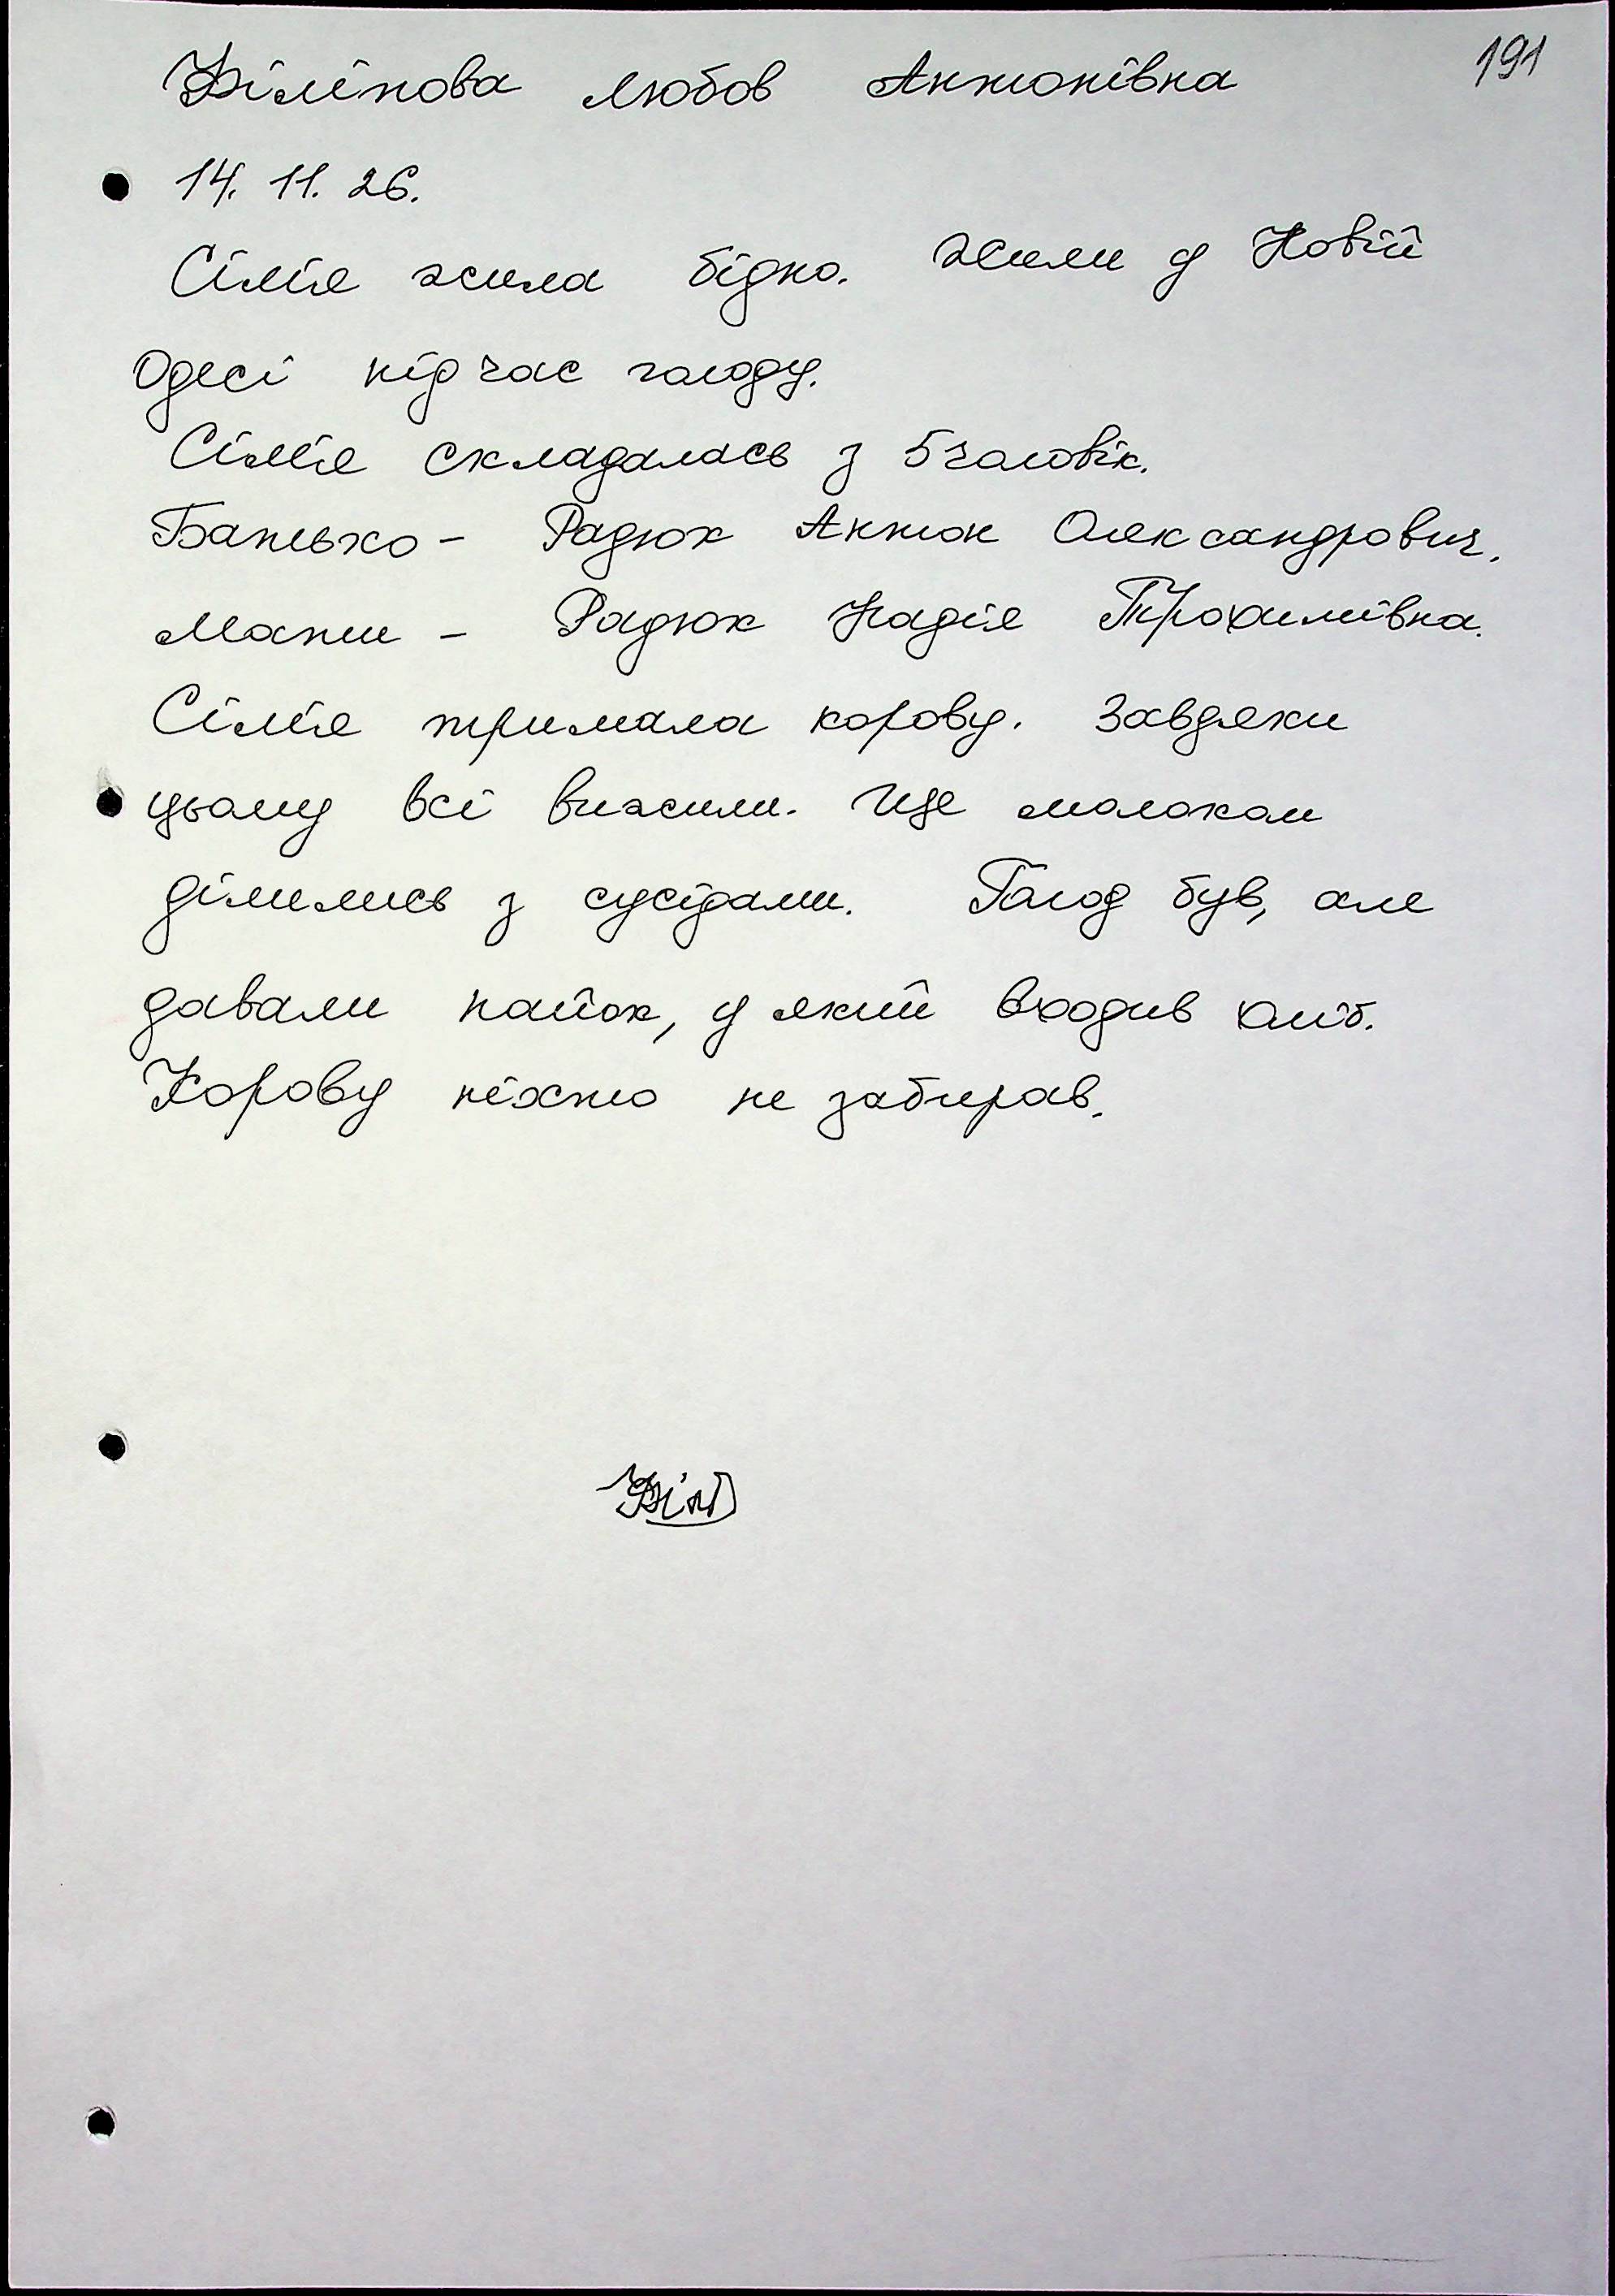 191
Філіпова Любов Антонівна
14. 11. 26.
Сім'я жила бідно. Жили у Новій
Одесі під час голоду.
Сім'я складалась з 5 чоловік.
Батько - Радюк Антон Олександрович.
Мати - Радюк Надія Трохимівна.
Сім'я тримала корову. Завдяки
цьому всі вижили. Ще молоком
ділились з сусідами. Голод був, але
давали пайок, у який входив хліб.
Корову ніхто не забирав.